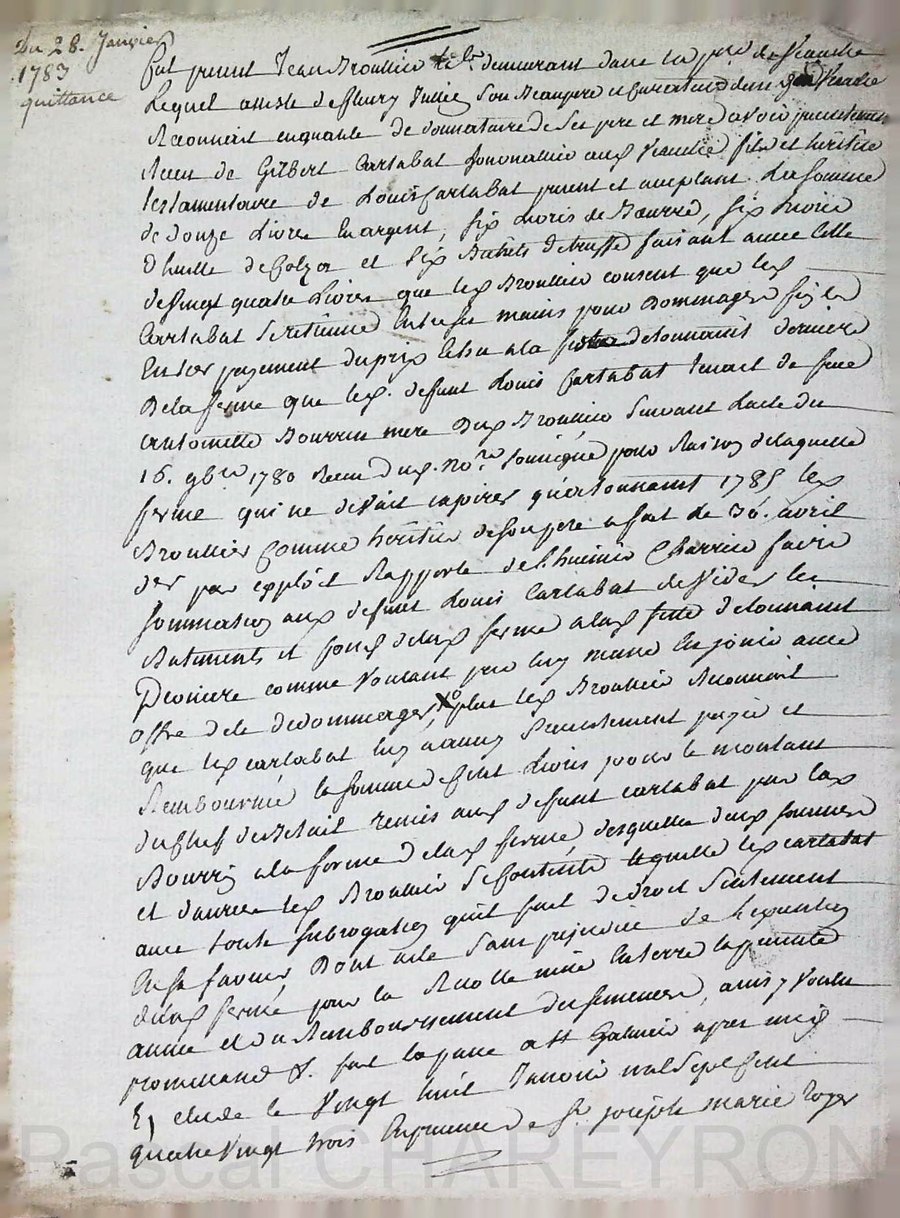 Du 28. Janvier
1783
quittance
fut present Jean Broullier demeurant dans la de Veauche
Lequel assisté de fleury Jullien son Beaupere et Curateur
Reconnait en qualité de donnataire de Ses pere et mere avoir presentement
Recu de Gilbert Cartabat Journallier aud Veauche fils et héritier
testamentaire de Louis Cartabat present et acceptant. La somme
de douze Livres En argent, six Livres de Beurre, six Livres
d'huille de Colza et six Bichets de truffe faisant avec Celle
de vingt quatre Livres que led Broullier consent que led
Cartabat Se retienne Entre ses mains pour Dommages
Entier payement du prix Echu a la detoussaint derniere
De la ferme que led. defunt Louis Cartabat tenait de feue
antoinette Bourrin mere Dud Broullier Suivant Lacte du
16. 9bre 1780 Recu dud. Nore Soussigné pour Raison de laquelle
ferme qui ne devait expirer qu'a toussaint 1785 led
Brouillier Comme héritier de sa mere a fait le 30. avril
der par exploit Rapporté de l'huissier Charrier faire
sommation aud defunt Louis Cartabat de vider les
Batiments et fonds de lad ferme a lad fette de toussaint
Derniere comme voulant par luy meme En jouir avec
offre de le dedommager, plus led Brouillier Reconnoit
que led cartabat luy a aussy presentement payé et
Remboursé la somme de Cent Livres pour le montant
du Chef de Betail remis aud defunt cartabat par lad
Bourrin a la forme de lad ferme, desquelles deux sommes
et d'autres led Broullier Se Contente et quitte led cartabat
avec toute subrogation qu'il fait de droit Seulement
En sa faveur, Dont acte Sans prejudice de l'execution
de lad ferme pour la Recolte mise En terre la presente
année et du Remboursement des semences, ainsy voulu
promettant &. fait et passé a St Galmier apres midy
En etude le Vingt huit Janvier mil Sept Cent
quatre vingt trois En presence de Sr. joseph marie Roger
Pascal CHAREYRON